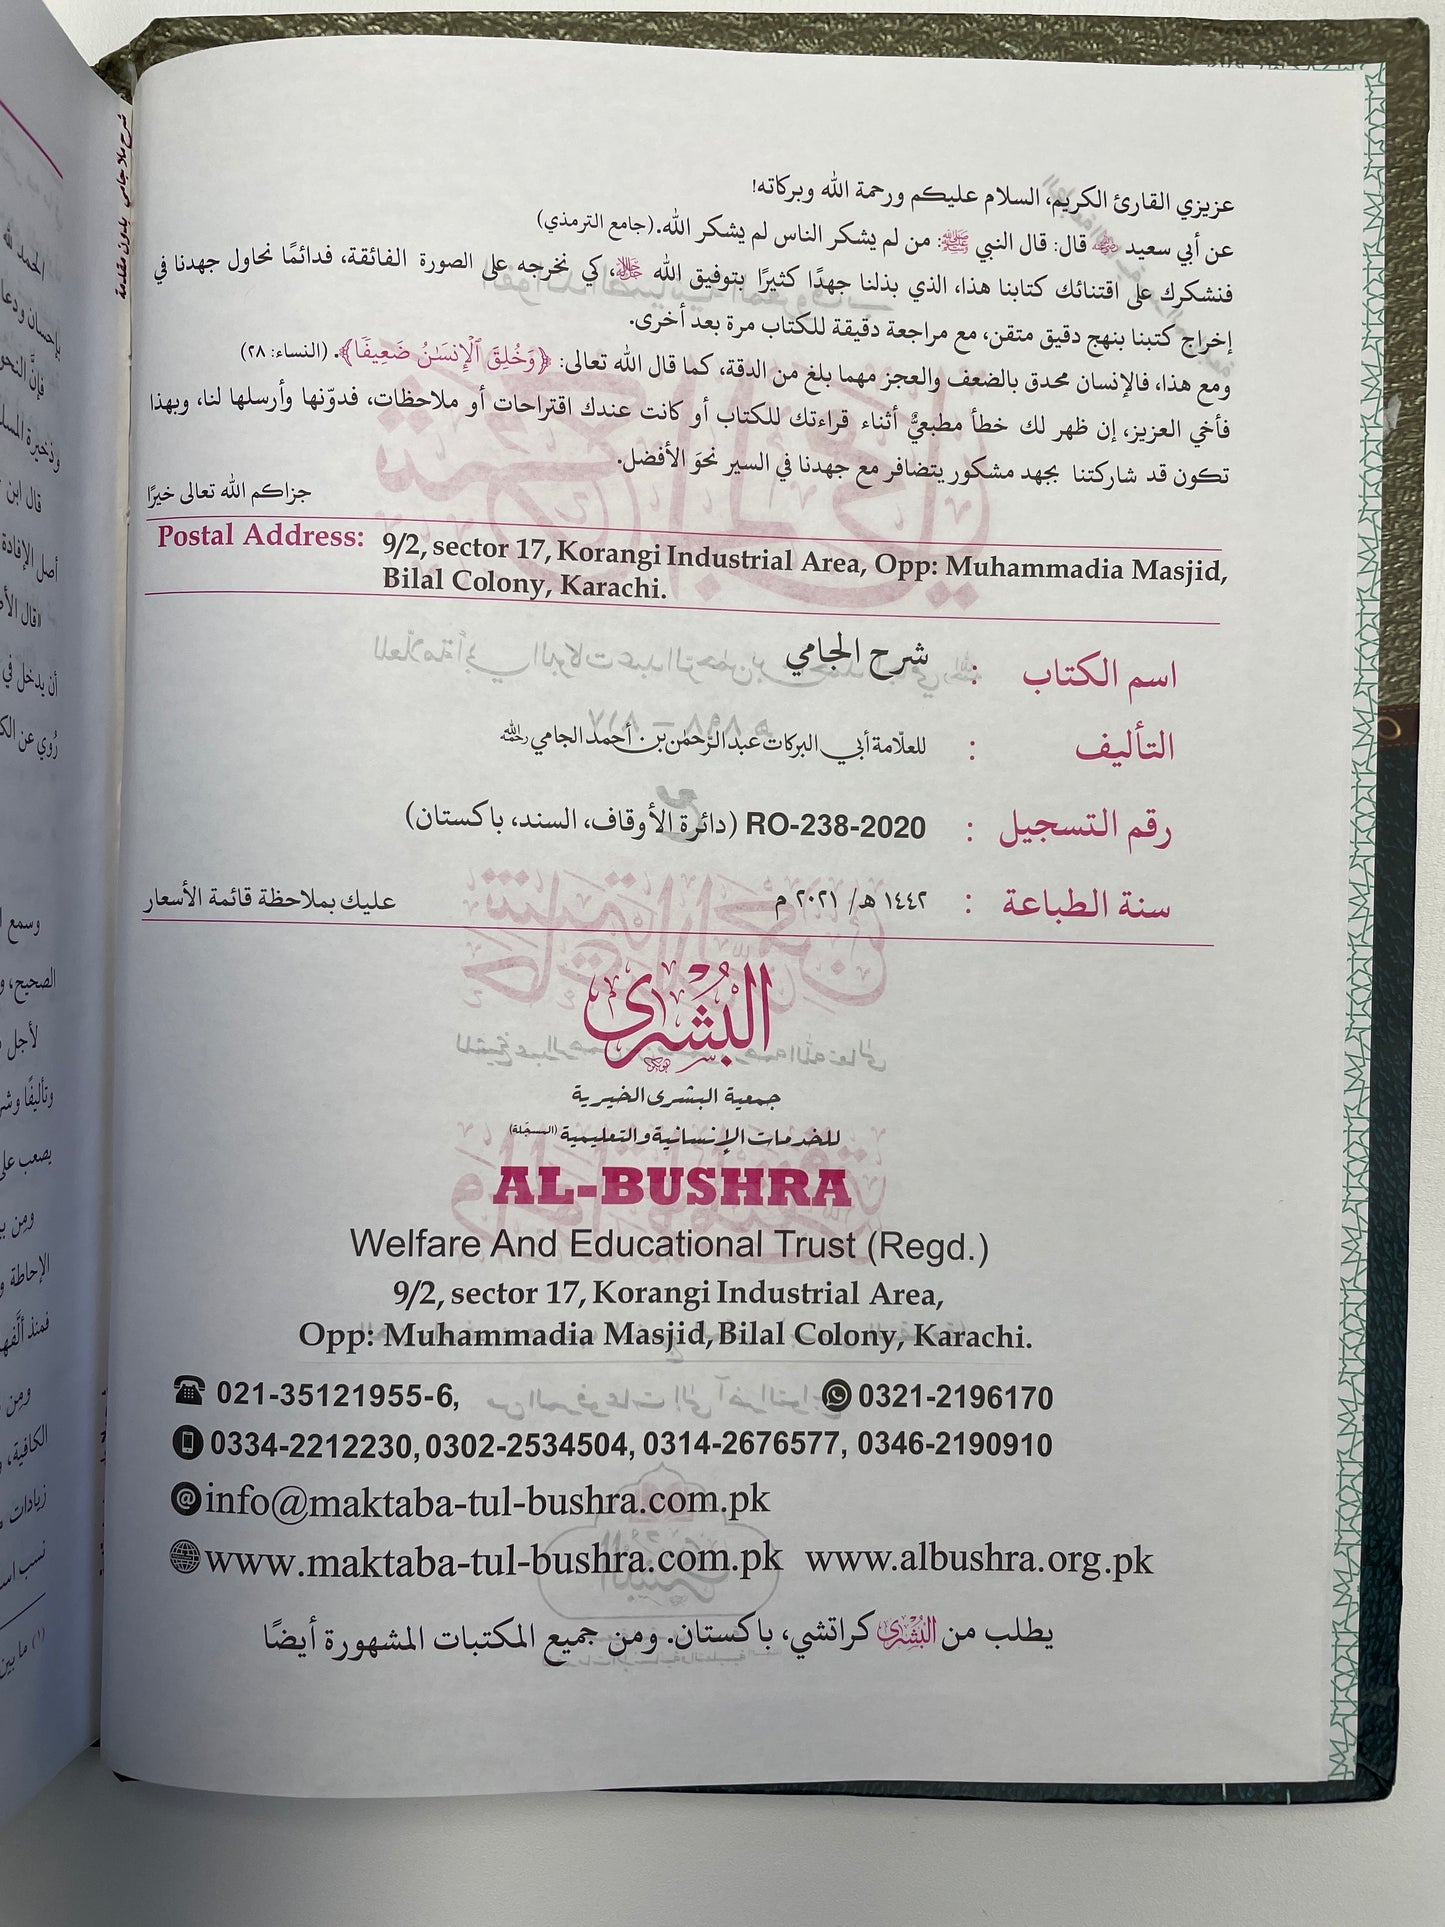 عزيزي القارئ الكريم، السلام عليكم ورحمة الله وبركاته!
عن أبي سعيد ﵁ قال: قال النبي ﷺ: من لم يشكر الناس لم يشكر الله. (جامع الترمذي)
فنشكرك على اقتنائك كتابنا هذا، الذي بذلنا جهدًا كثيرًا بتوفيق الله ﷻ، كي نخرجه على الصورة الفائقة، فدائمًا نحاول جهدنا في
إخراج كتبنا بنهج دقيق متقن، مع مراجعة دقيقة للكتاب مرة بعد أخرى.
ومع هذا، فالإنسان محدق بالضعف والعجز مهما بلغ من الدقة، كما قال الله تعالى: ﴿وَخُلِقَ ٱلْإِنسَـٰنُ ضَعِيفًا﴾. (النساء: ٢٨)
فأخي العزيز، إن ظهر لك خطأ مطبعيٌّ أثناء قراءتك للكتاب أو كانت عندك اقتراحات أو ملاحظات، فدوّنها وأرسلها لنا، وبهذا
تكون قد شاركتنا بجهد مشكور يتضافر مع جهدنا في السير نحوَ الأفضل.
جزاكم الله تعالى خيرًا
Postal Address: 9/2, sector 17, Korangi Industrial Area, Opp: Muhammadia Masjid,
Bilal Colony, Karachi.
اسم الكتاب : شرح الجامي
التأليف : للعلّامة أبي البركات عبد الرحمٰن بن أحمد الجامي رحمه الله
رقم التسجيل : RO-238-2020 (دائرة الأوقاف، السند، باكستان)
سنة الطباعة : ١٤٤٢ هـ/ ٢٠٢١ م عليك بملاحظة قائمة الأسعار
البُشرى
جمعية البشرى الخيرية
للخدمات الإنسانية والتعليمية (المسجلة)
AL-BUSHRA
Welfare And Educational Trust (Regd.)
9/2, sector 17, Korangi Industrial Area,
Opp: Muhammadia Masjid, Bilal Colony, Karachi.
021-35121955-6, 0321-2196170
0334-2212230, 0302-2534504, 0314-2676577, 0346-2190910
info@maktaba-tul-bushra.com.pk
www.maktaba-tul-bushra.com.pk www.albushra.org.pk
يطلب من البُشرى كراتشي، باكستان. ومن جميع المكتبات المشهورة أيضًا